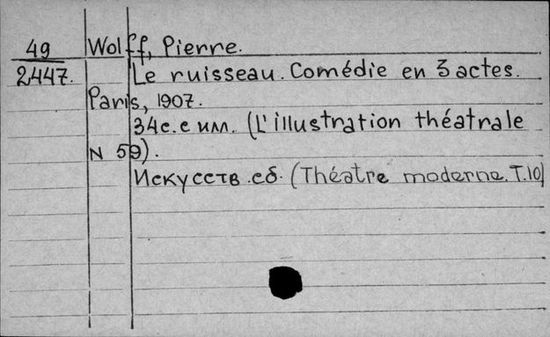 49 Wolff, Pierre.
2447. Le ruisseau. Comédie en 3 actes.
Paris, 1907.
34с. с илл. (L'illustration théatrale
N 59).
Искусств. сб. (Théatre moderne. T.10)